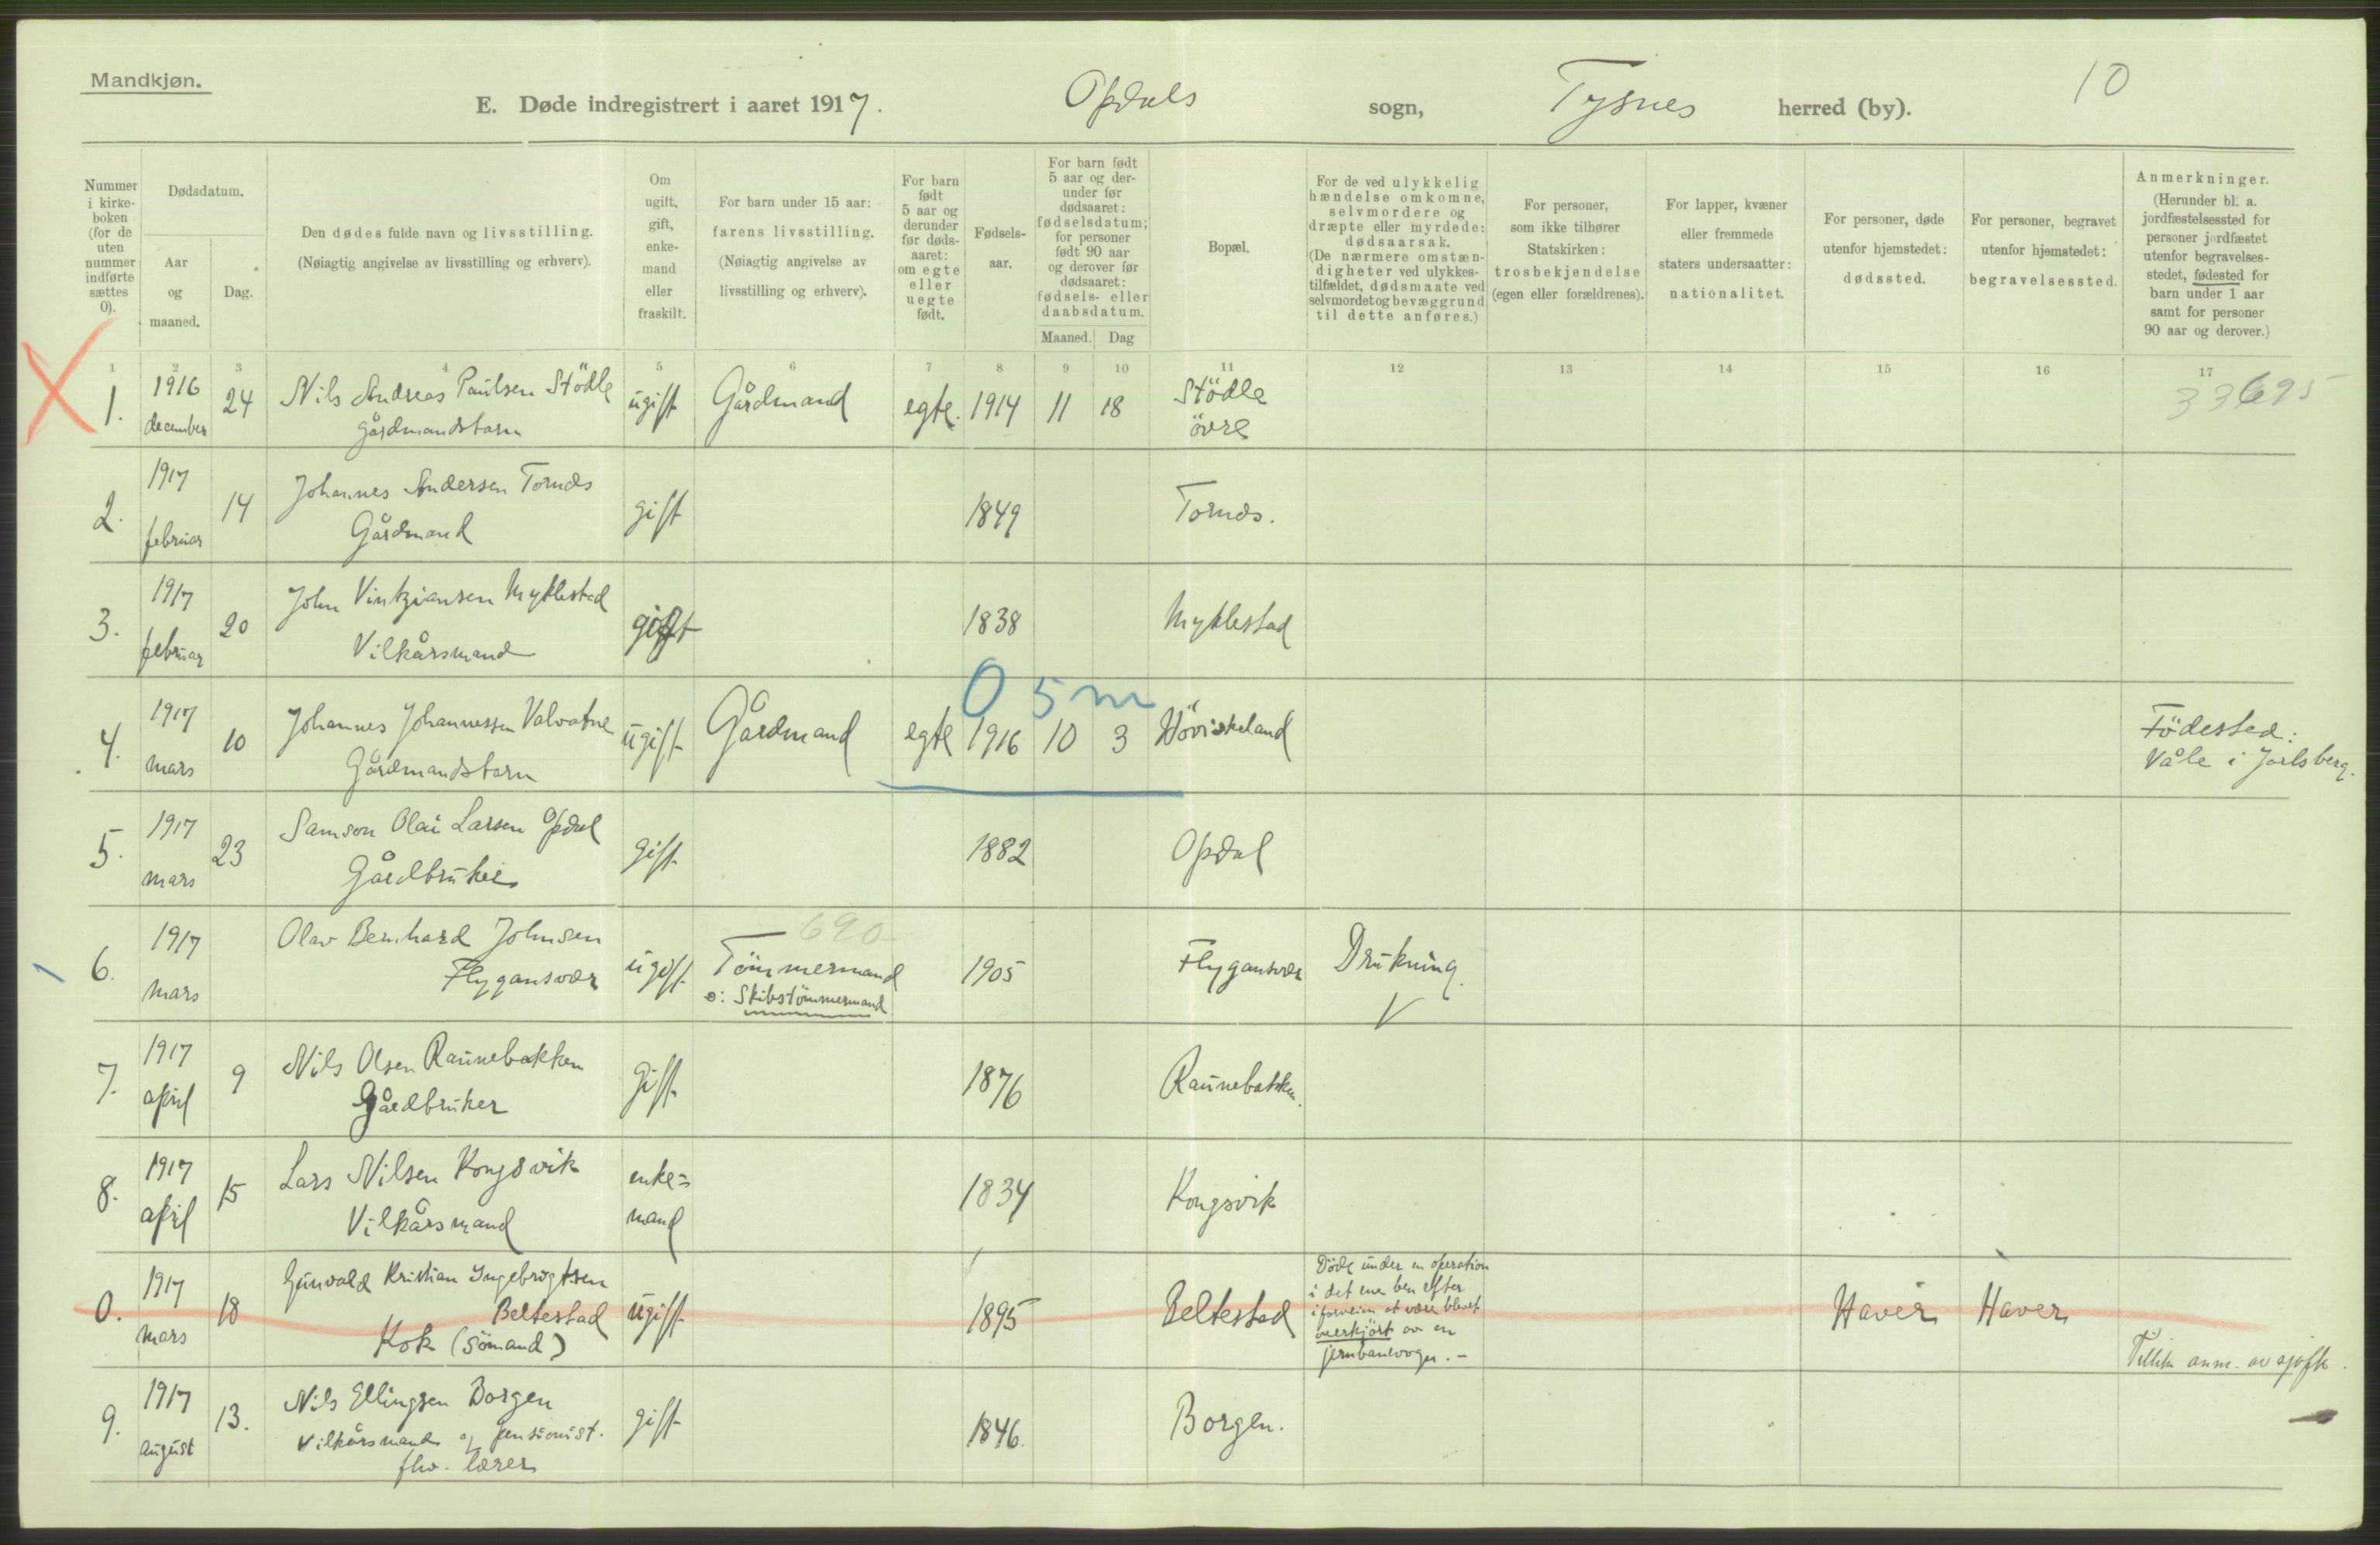 Mandkjøn.
E. Døde indregistrert i aaret 1917. Opdals sogn, Tysnes herred (by). 10
Nummer i kirke-boken (for de uten nummer indførte sættes 0).
Dødsdatum.
Aar og maaned.
Dag.
Den dødes fulde navn og livsstilling.
(Nøiagtig angivelse av livsstilling og erhverv).
Om ugift, gift, enke-mand eller fraskilt.
For barn under 15 aar:
farens livsstilling.
(Nøiagtig angivelse av livsstilling og erhverv).
For barn født 5 aar og derunder før døds-aaret: om egte eller uegte født.
Fødsels-aar.
For barn født 5 aar og der-under før dødsaaret: fødselsdatum; for personer født 90 aar og derover før dødsaaret: fødsels- eller daabsdatum.
Maaned. Dag
Bopæl.
For de ved ulykkelig hændelse omkomne, selvmordere og dræpte eller myrdede: dødsaarsak.
(De nærmere omstæn-digheter ved ulykkes-tilfældet, dødsmaate ved selvmordet og bevæggrund til dette anføres.)
For personer, som ikke tilhører Statskirken: trosbekjendelse (egen eller forældrenes).
For lapper, kvæner eller fremmede staters undersaatter: nationalitet.
For personer, døde utenfor hjemstedet: dødssted.
For personer, begravet utenfor hjemstedet: begravelsessted.
Anmerkninger.
(Herunder bl. a. jordfæstelsessted for personer jordfæstet utenfor begravelses-stedet, fødested for barn under 1 aar samt for personer 90 aar og derover.)
1 2 3 4 5 6 7 8 9 10 11 12 13 14 15 16 17
1. 1916 december 24 Nils Andreas Paulsen Stödle ugift Gårdmand egte. 1914 11 18 Stödle övre 33695
gårdmandsbarn
2. 1917 februar 14 Johannes Andersen Tornæs gift 1849 Tornæs.
Gårdmand
3. 1917 februar 20 John Vintzjansen Myklestad gift 1838 Myklestad
Vilkårsmand
0 5 m
4. 1917 mars 10 Johannes Johannessen Valvatne ugift Gårdmand egte 1916 10 3 Höviskeland Födested:
Gårdmandsbarn Våle i Jarlsberg.
5. 1917 mars 23 Samson Olai Larsen Opdal gift 1882 Opdal
Gårdbruker
690
6. 1917 mars Olav Bernhard Johnsen ugift Tömmermand 1905 Flygansvær Drukning.
Flygansvær
o: Skibstömmermand
7. 1917 april 9 Nils Olsen Raunebakken Gift 1876 Raunebakken.
Gårdbruker
8. 1917 april 15 Lars Nilsen Kongsvik enke=mand 1834 Kongsvik
Vilkårsmand
0. 1917 mars 18 Gunvald Kristian Ingebrigtsen Beltestad ugift 1895 Beltestad
Kok (sömand)
Döde under en operation
i det ene ben efter
iforveien at være blevet
overkjört av en
jernbanevogn. -
Havér Havér
anm. av
9. 1917 august 13. Nils Ellingsen Borgen gift 1846. Borgen.
Vilkårsmand og pensionist.
fhv. lærer